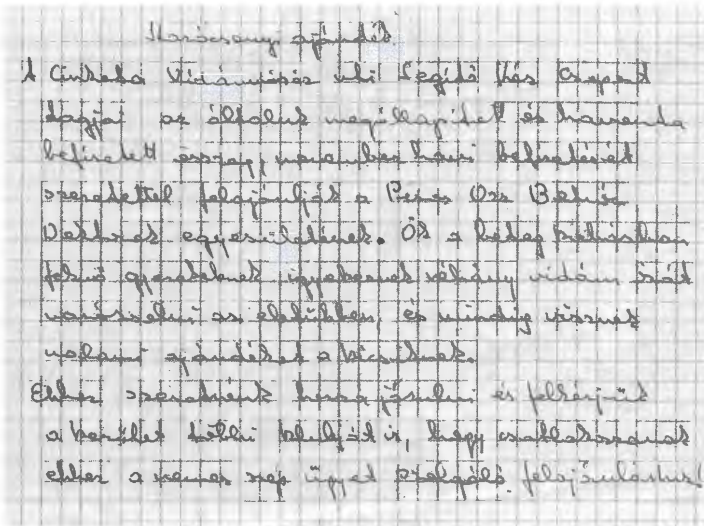 Karácsonyi ajándék
A Cinkotai Vidámvásár utui Segítő Kéz Csoport
tagjai az általuk megállapított és havonta
befizetett összeg, november havi befizetését
szeretettel felajánlják a Piros Orr Bohóc
Doktorok egyesületének. Ők a beteg kórházban
fekvő gyerekeknek igyekeznek néhány vidám órát
varázsolni az életükben, és mindig visznek
valami ajándékot a kicsiknek.
Ehhez szeretnénk hozzájárulni és felkérjük
a kerület többi klubját is, hogy csatlakozzanak
ehhez a nemes szép ügyet szolgáló felajánláshoz!